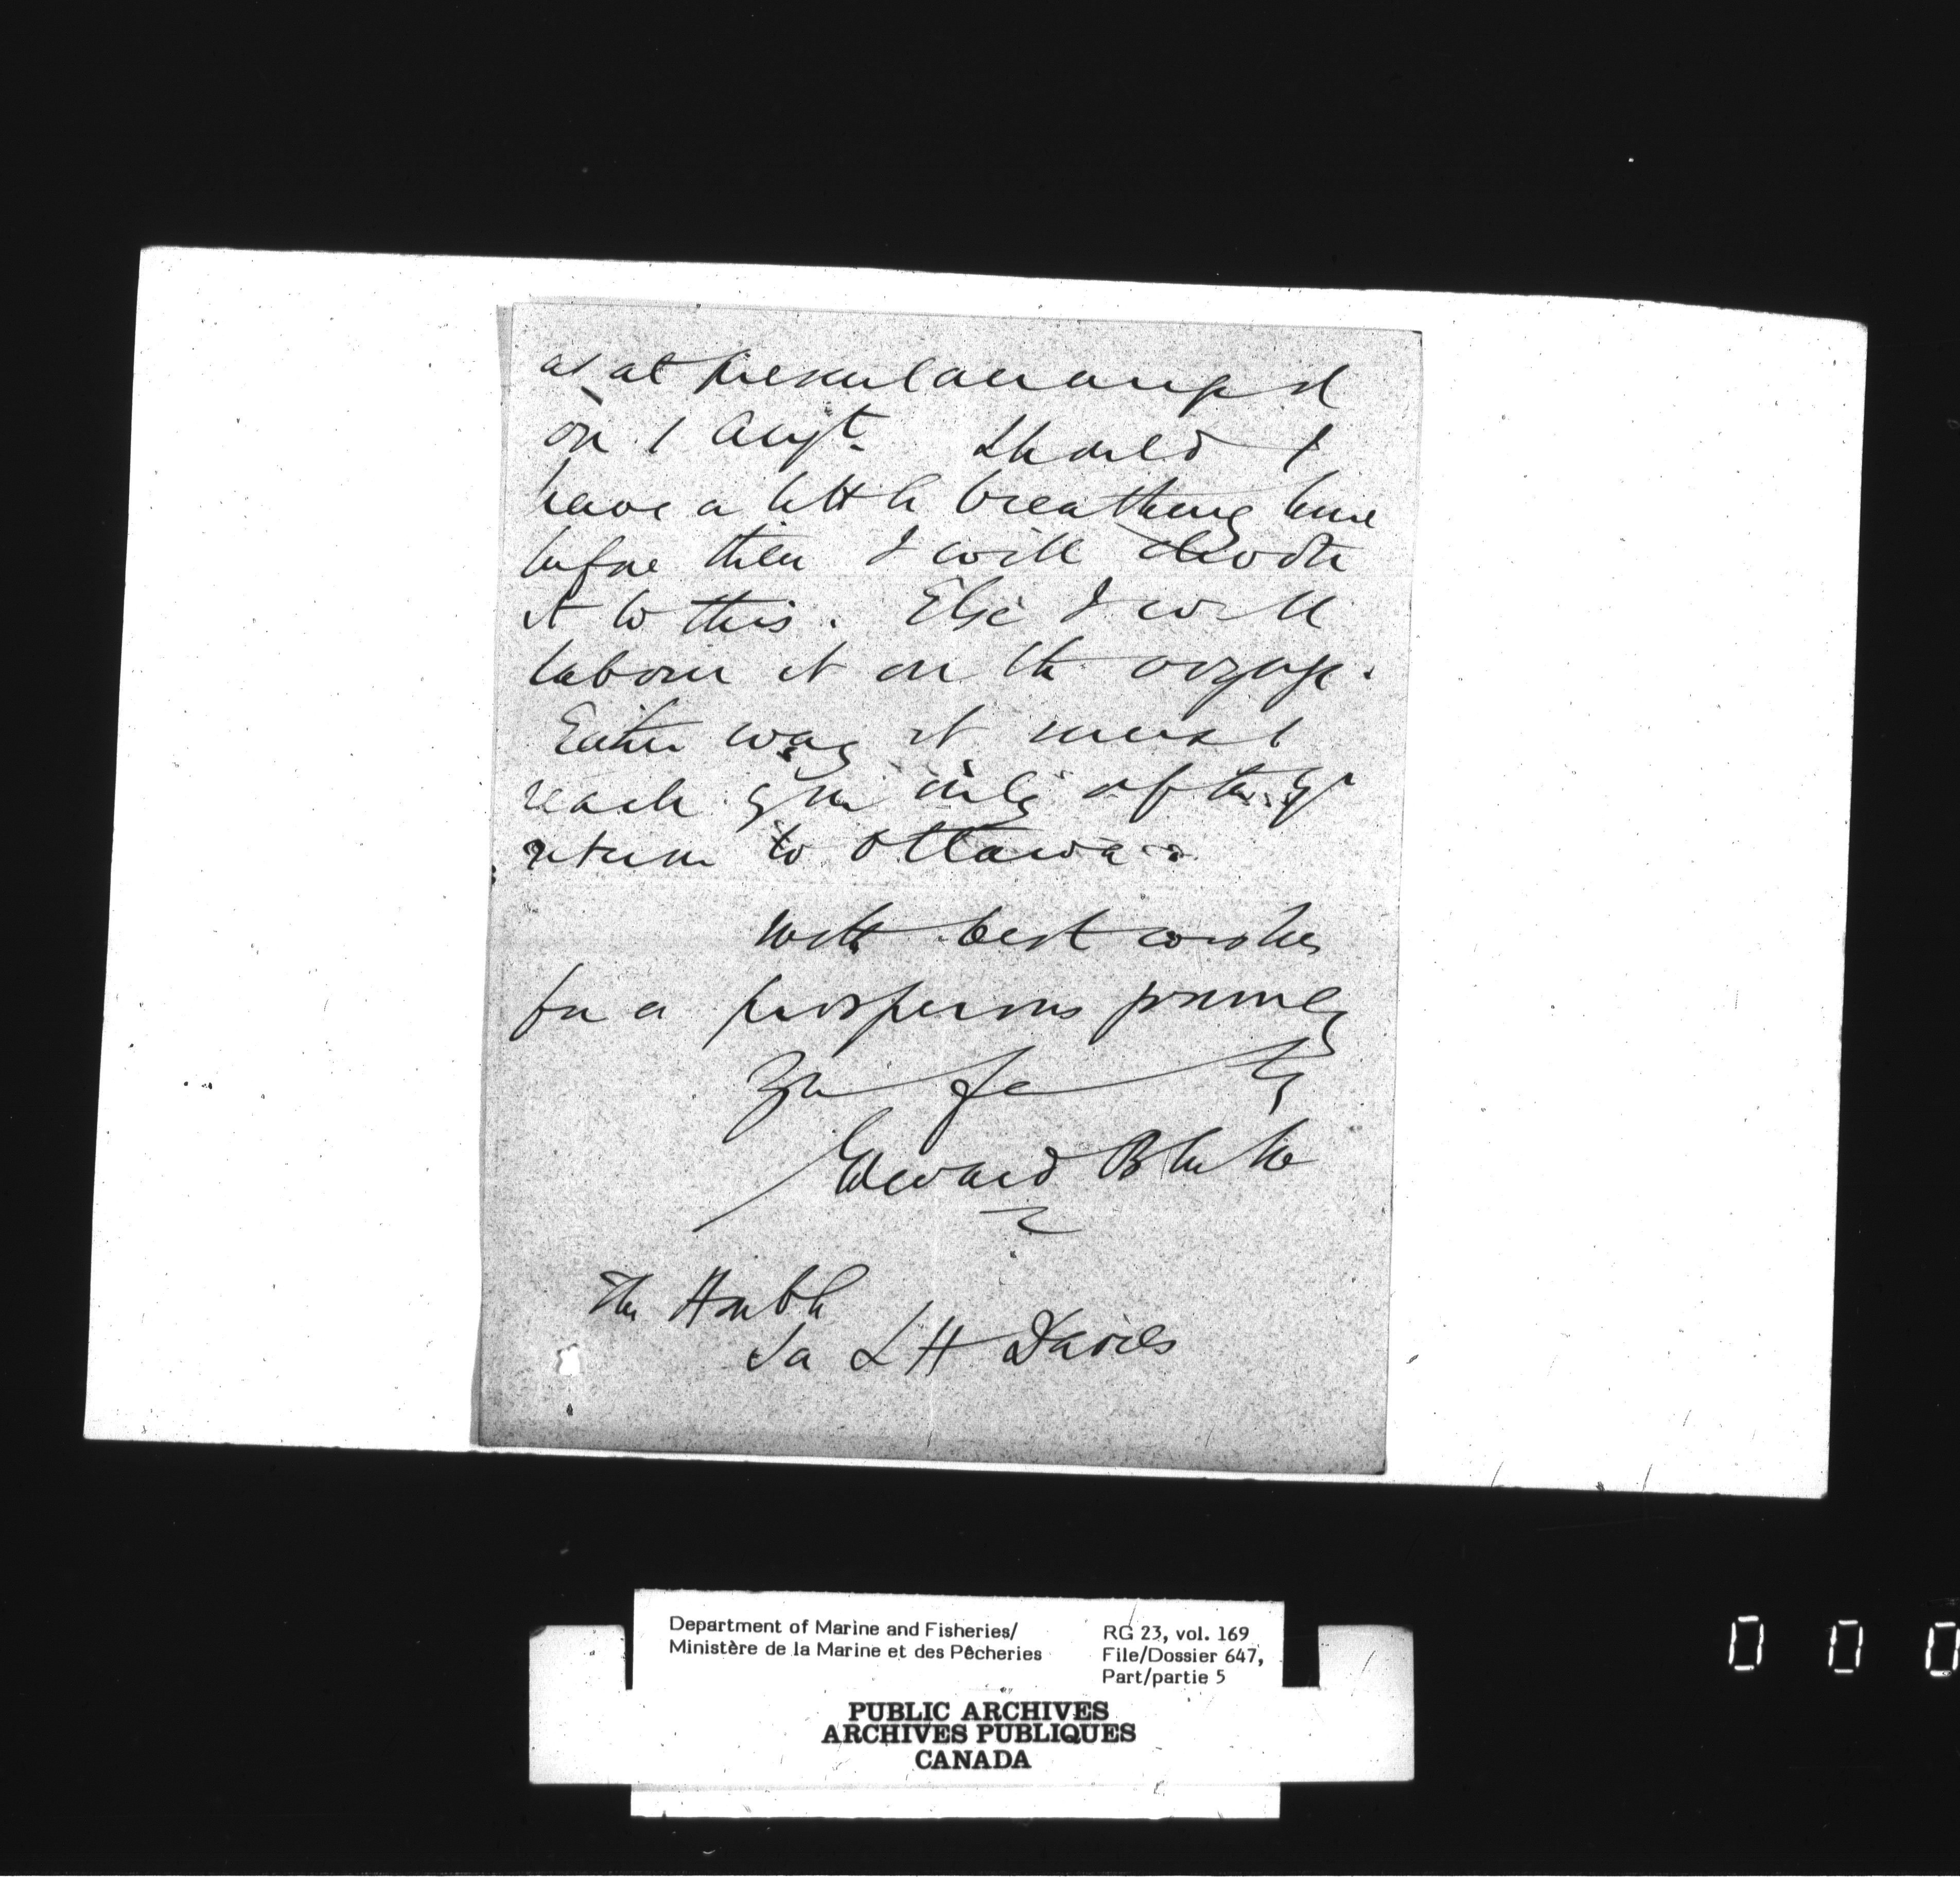 as at present arranged
on 1 Augt. Should I
have a little breathing time
before then I will devote
it to this. Else I will
labour it on the voyage.
Either way it must
reach you only after yr
return to Ottawa.
With best wishes
for a prosperous journey
Yrs
Edward Blake
The Honble
Sir L H Davies
Department of Marine and Fisheries/
Ministère de la Marine et des Pêcheries
RG 23, vol. 169
File/Dossier 647,
Part/partie 5
PUBLIC ARCHIVES
ARCHIVES PUBLIQUES
CANADA
0 0 0